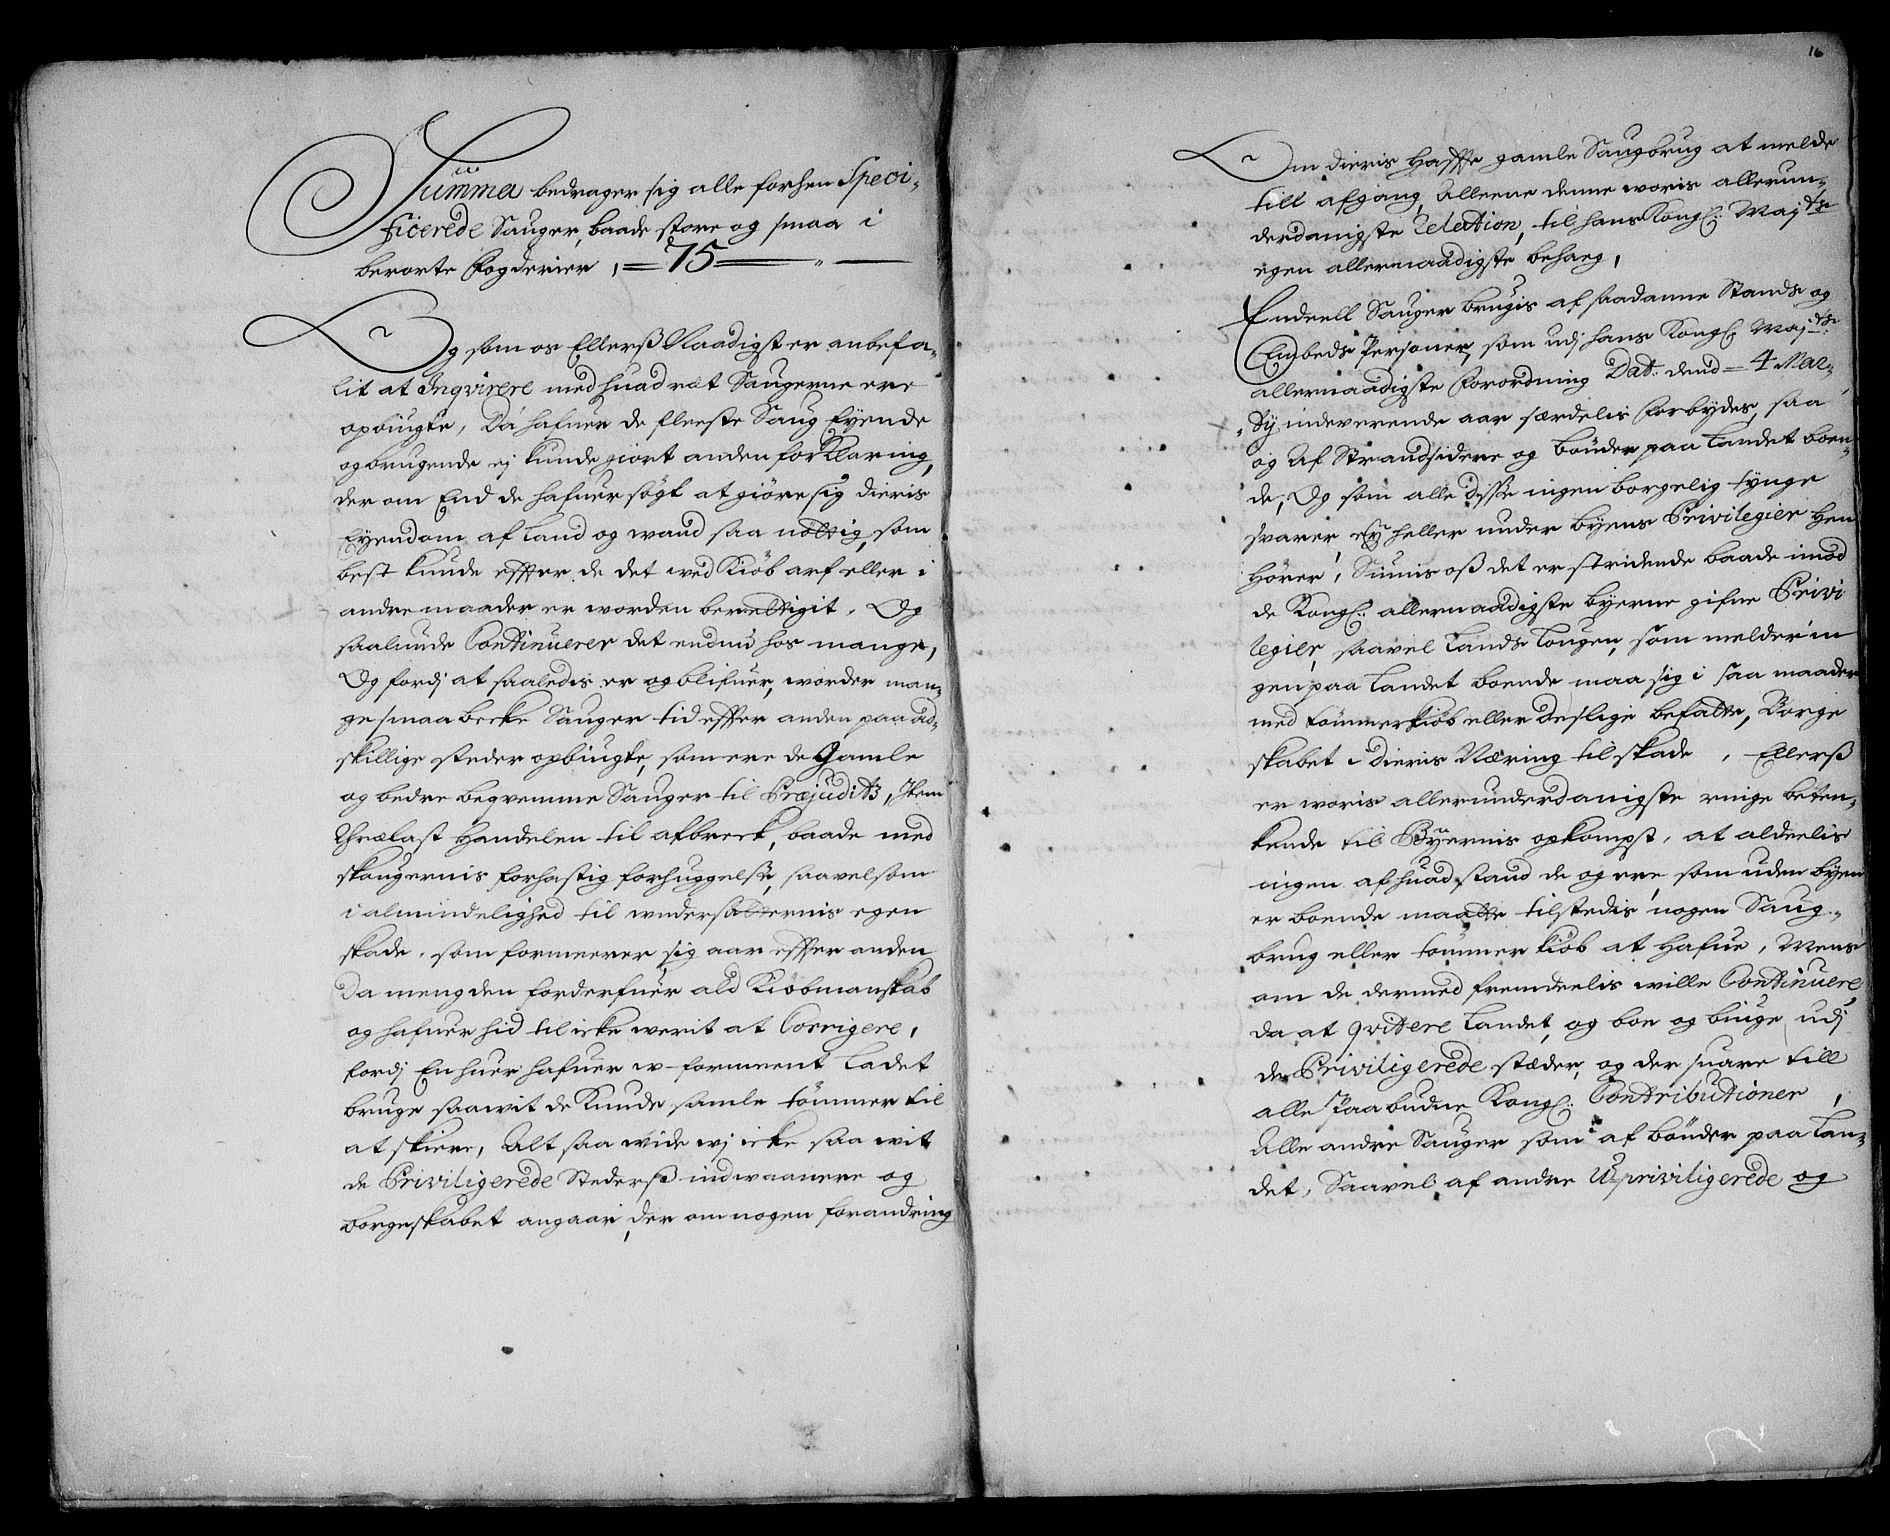 Summa bedrager sig alle forhen Speci-
ficerede Sauger, baade store og smaa i
berørte Fogderier, = 75 =
Og som os Ellerß Naadigst er anbefa-
lit at Inqvirere med huad ræt Saugerne ere
opbÿugte, Da hafuer de fleeste Saug Eyende
og brugende ej kunde giort anden forKlaring,
der om End de hafuer søgt at giøre sig dieris
Eyendom af Land og wand saa nøttig, som
best kunde effter de det wed Kiøb arf eller i
andre maader er worden berettigit. Og
saalunde Continuerer det endnu hos mange,
Og fordj at saaledis er og blifuer, worder man-
ge smaa becke Sauger tid effter anden paa ad-
skillige steder opbiugte, som ere de Gamle
og bedre beqvemme Sauger til Præjuditz, Item
Thrælast Handelen til afbreck, baade med
skougernis forhastig forhuggelse, saavelsom
i almindelighed til undersatternis egen
skade, som formeerer sig aar effter anden
Da mengden forderfuer ald Kiøbmanskab
og hafuer hid til icke werit at Corrigere,
fordj En huer hafuer w-formeent ladet
bruge saawit de Kunde samle tømmer til
at skiere, Alt saa wide wj icke saa wit
de Priviligerede Stederß indwaanere og
borgeskabet angaar, der om nogen forandring
16
Om dieris Haffte gamle Saugbrug at melde
till afgang, Alleene denne woris allerun-
derdanigste Relation, til hans Kongl: Maj:ts
egen allernaadigste behaeg,
Endeell Sauger brugis af saadanne Stands og
Embeds Personer, som udj hans Kongl Maj:ts
allernaadigste forordning Dat: dend = 4 Mar-
tij indeverende aar særdelis forbydes, saa
og Af Strandsidere og bønder paa Landet boen-
de, Og som alle disse ingen borgelig tynge
svarer, eÿ heller under byens Privilegier Hen
Hører, Siunis oß det er stridende baade imod
de Kongl: allernaadigste byerne gifne Privi
legier, saavel Lands Lougen, som melder in
gen paa Landet boende maa sig i saa maader
med tømmerkiøb eller deslige befatte, Borge
skabet i dieris Næring til skade, Ellerß
er woris allerunderdanigste ringe beten-
kende til Byernis opkompst, at aldeelis
ingen af huad stand de og ere, som uden byen
er boende maatte tilstedis nogen Saug-
brug eller tømmer kiøb at Hafue, Mens
om de dermed fremdeelis wille Continuere
da at qvittere Landet, og boe og biuge udj
de Priviligerede stæder, og der suare till
alle Paabudne Kongl: Contributioner,
Alle andre Sauger som af bønder paa Lan-
det, Saavel af andre Upriviligerede og